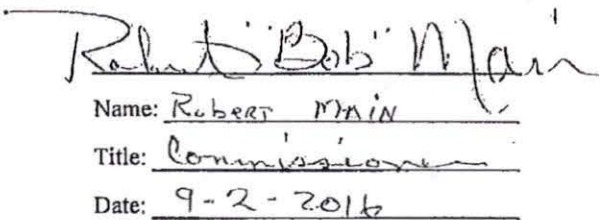 Robert "Bob" Main
Name: Robert MAIN
Title: Commissioner
Date: 9-2-2016